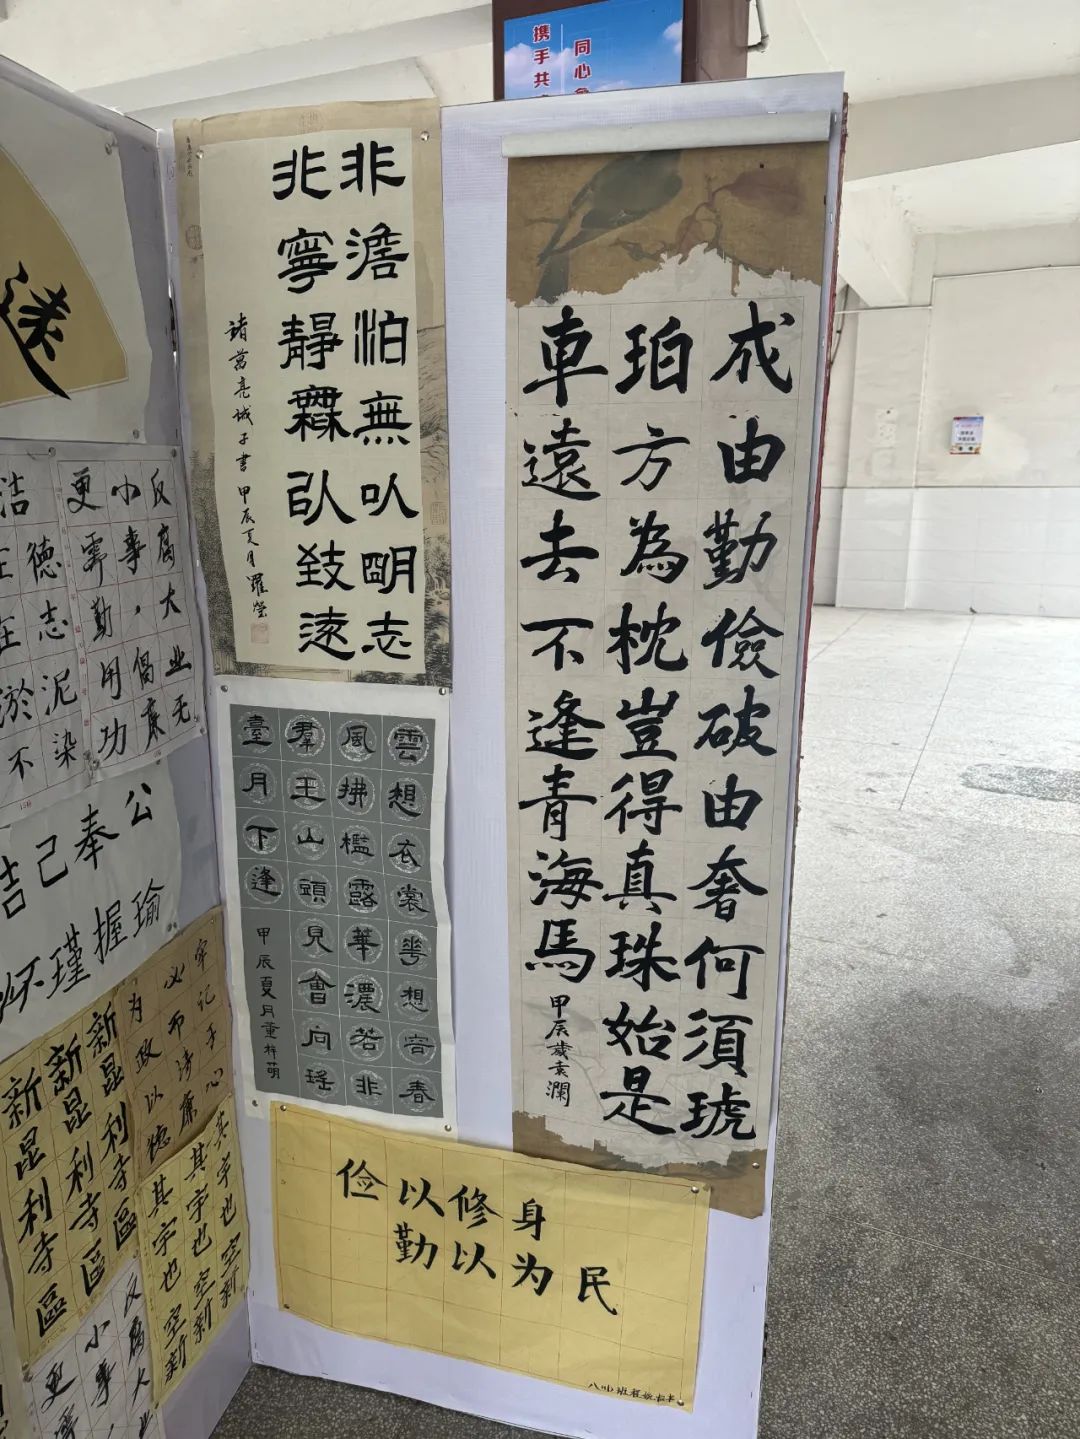 携手共
同心
非澹泊無以明志
非寧靜無以致遠
諸葛亮誡子書 甲辰夏月
成由勤儉破由奢何須琥
珀方為枕豈得真珠始是
車遠去不逢青海馬
甲辰歲袁瀾
雲想衣裳花想容春
風拂檻露華濃若非
羣玉山頭見會向瑤
臺月下逢
甲辰夏月董梓萌
俭以修身
勤以为民
反腐大业无
小事,倡廉
更需勤用功
德志泥染
洁
在
淤不
公奉己
瑜握瑾怀
牢记于心
必而清廉
为政以德
新昆利寺區
新昆利寺區
新昆利寺區
其宇也空新
其宇也空新
其宇也空新
反腐大
小事,
更